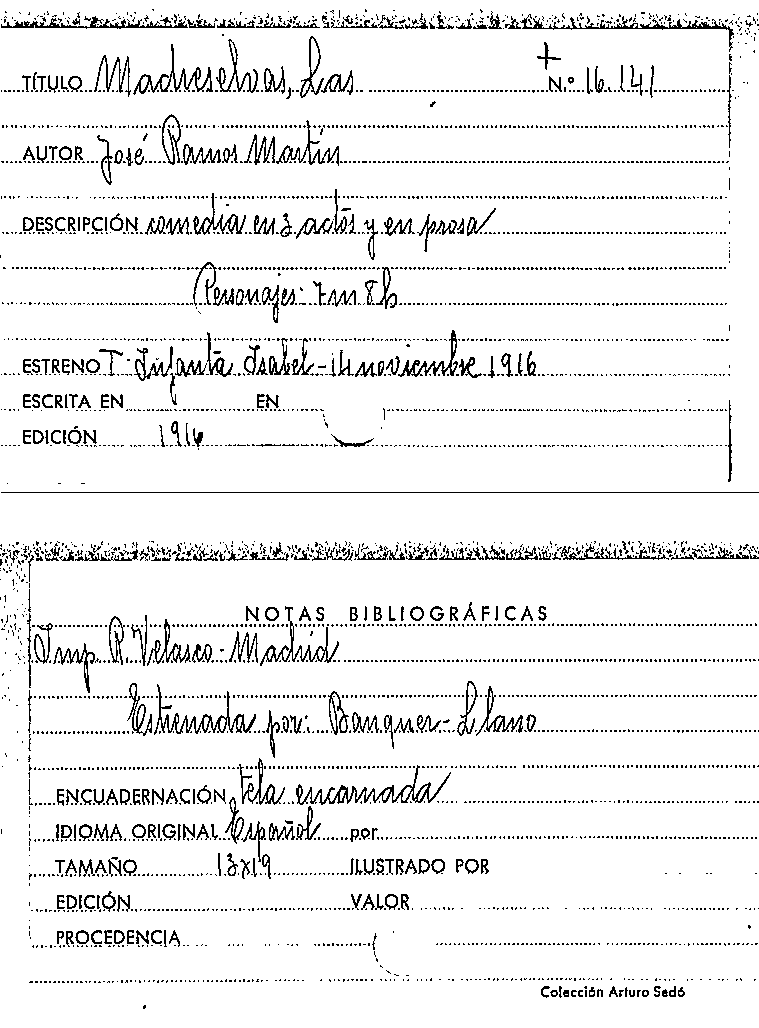 TÍTULO Madreselvas, Las + N.º 16.141
AUTOR José Ramos Martín
DESCRIPCIÓN comedia en 3 actos y en prosa
Personajes: 7m 8h
ESTRENO T. Infanta Isabel - 14 noviembre 1916
ESCRITA EN EN
EDICIÓN 1916
NOTAS BIBLIOGRÁFICAS
Imp. R. Velasco - Madrid
Estrenada por: Banquer - Llano
ENCUADERNACIÓN tela encarnada
IDIOMA ORIGINAL Español por
TAMAÑO 13x19 ILUSTRADO POR
EDICIÓN VALOR
PROCEDENCIA
Colección Arturo Sedó